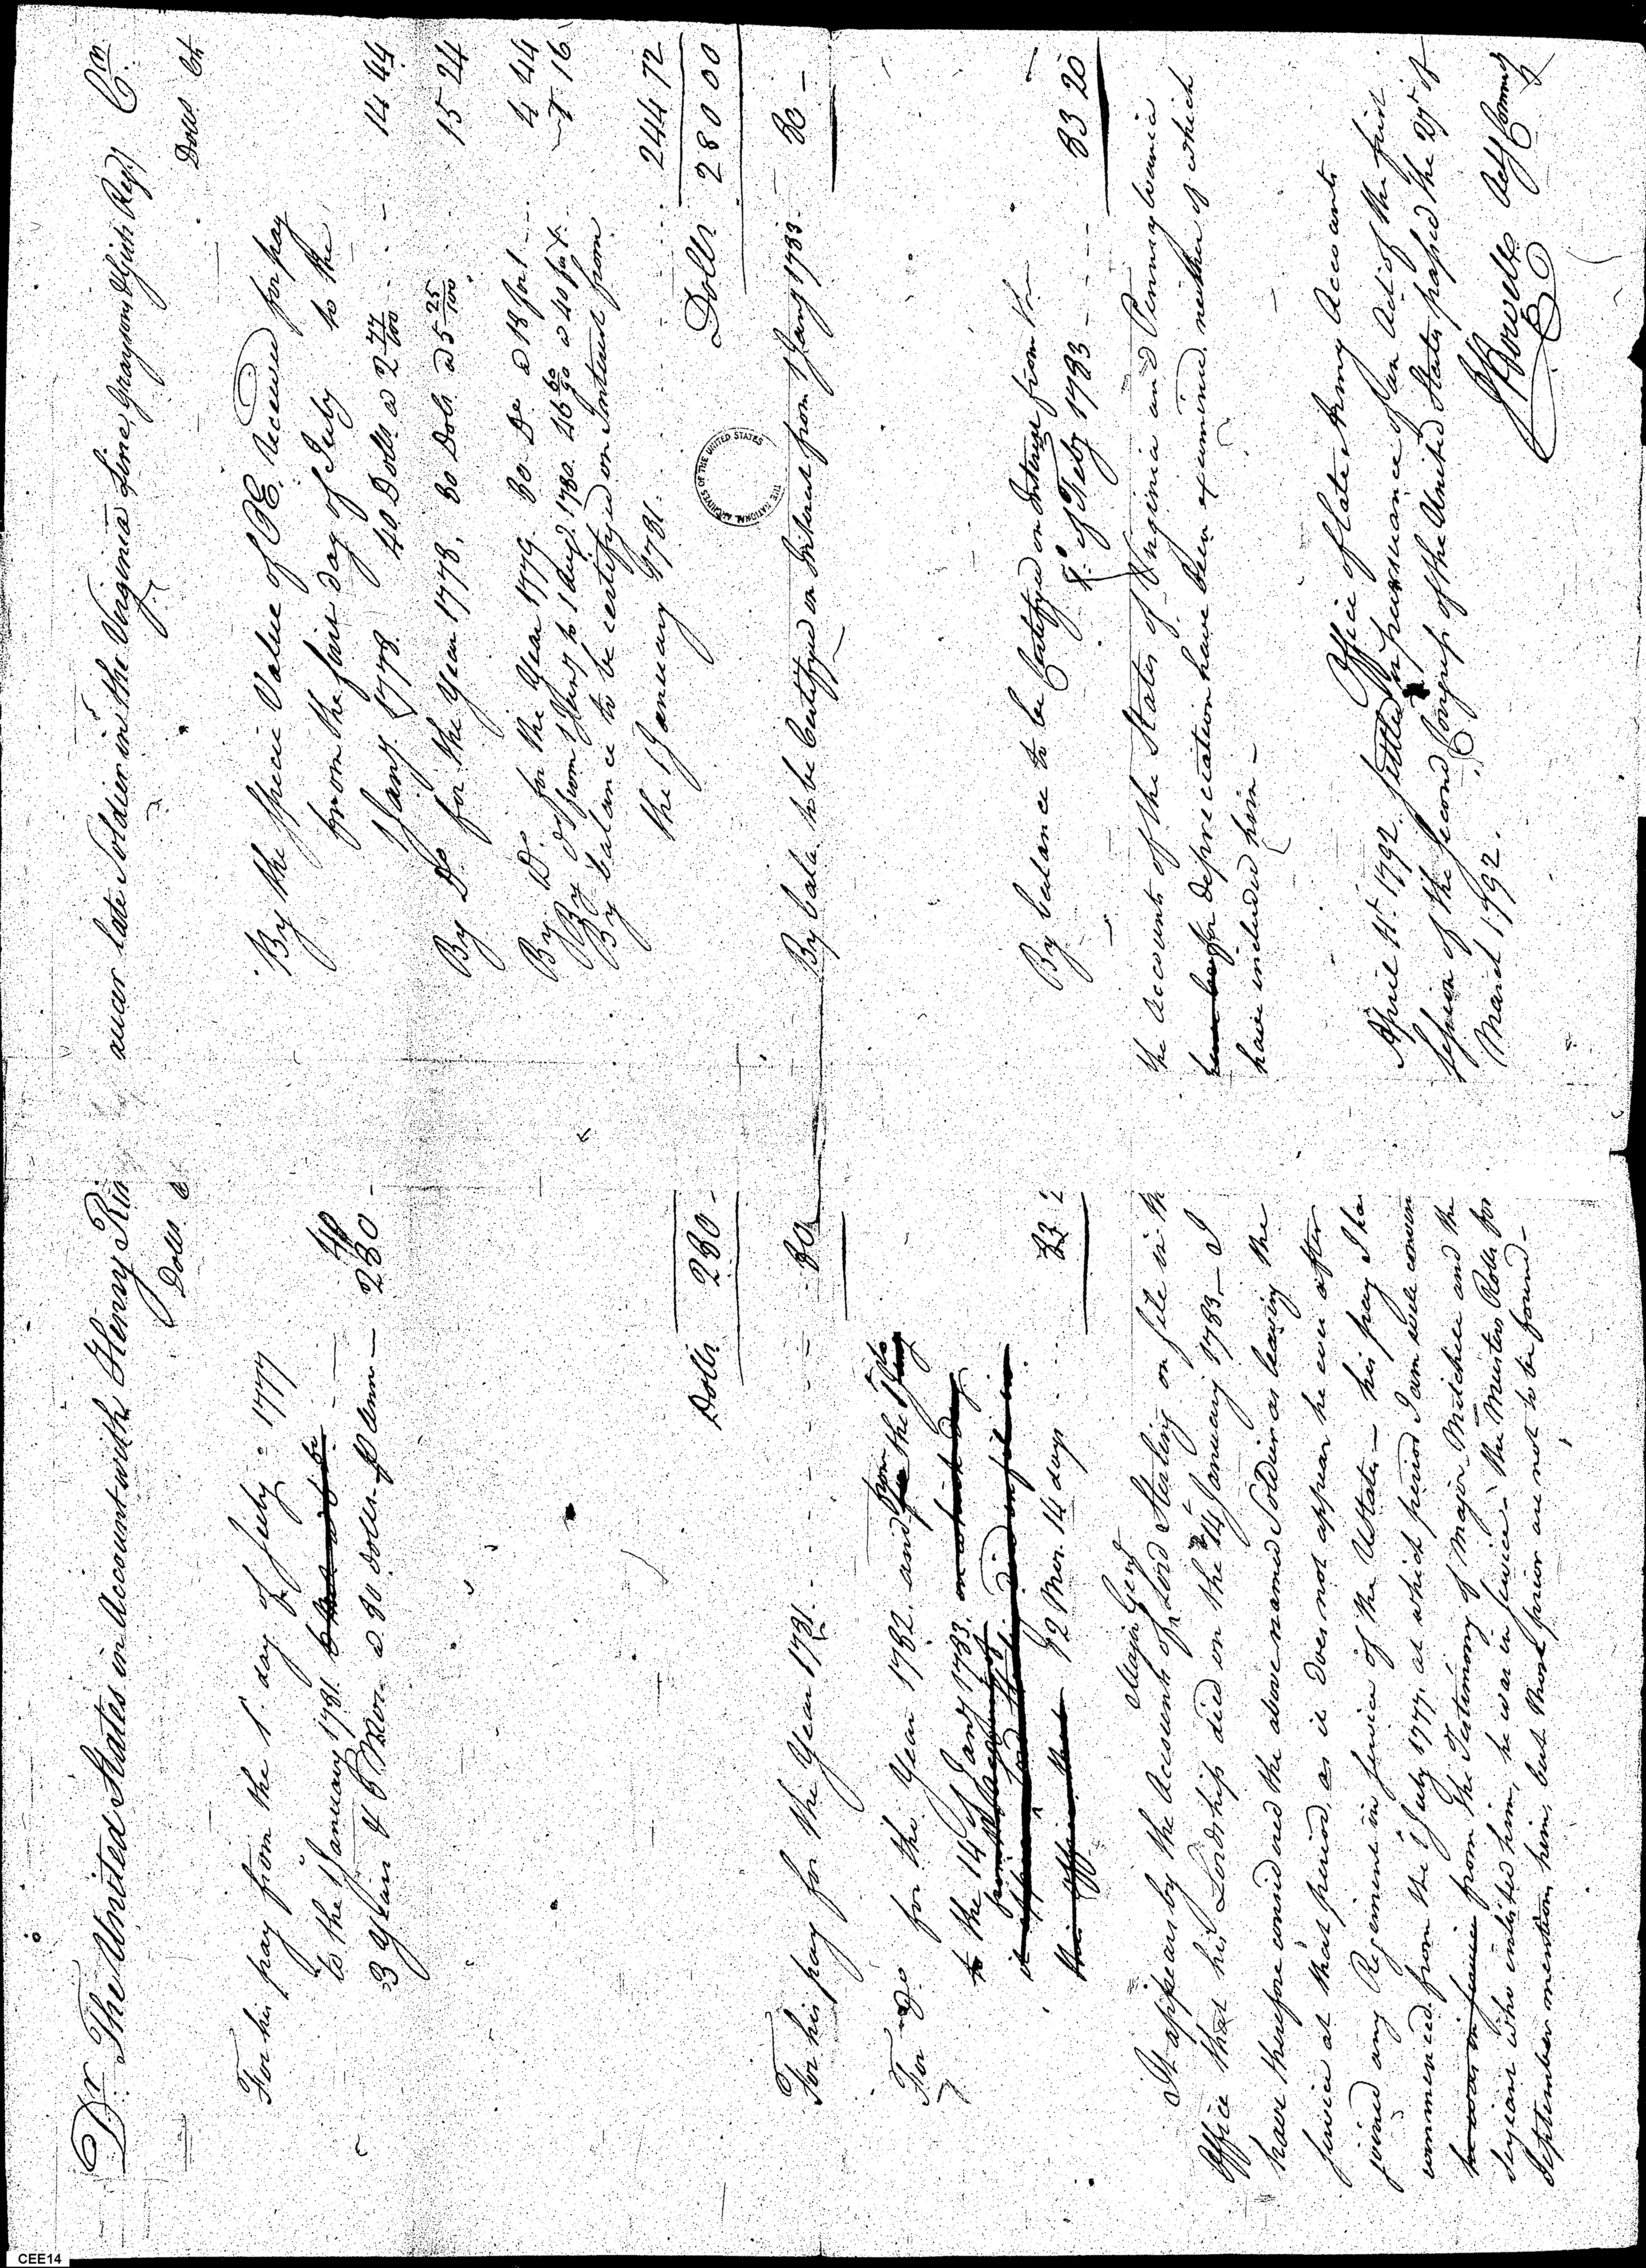 Dr. The United States in Account with Henry Rin
Dolls. c
For his pay from the 1st. day of July - 1777
to the 1st January 1781.
3 Years & 6 Mos. a 80 dolls. p Ann — 280 -
Dolls. 280 -
For his pay for the Year 1781. 80
For do for the Year 1782. and from the 1st
to the 14 of Jany 1783.
12 Mos. 14 days 83 2
It appears by the Accounts of Major Genl Lord Sterling on file in th
Office that his Lordship died on the 14th January 1783 — I
have therefore considered the above named Soldier as leaving the
service at that period, as it does not appear he ever after
joined any Regiment in service of the U States — his pay I ha
commenced from the 1st July 1777. at which period I am well convin
he was in service from the Testimony of Major Mitchell and the
serjeant who enlisted him, he was in service - the Musters Rolls for
September mention him, but those prior are not to be found —
aucer late Soldier in the Virginia Line, Graysons & Gists Regt Cr.
Dolls. Cts
By the Specie Value of CE. received for pay
from the first day of July to the
1st Jany. 1778. 40 Dolls. a 2 77/100 14 44
By Do for the Year 1778. 80 Dolls a 5 25/100 15 24
By Do. for the Year 1779. 80 Do a 18 for 1 4 44
By do from 1st Jany to 1 Augt. 1780. 46 60/90 a 40 for 1. 1 16
By balance to be certifyed on Interest from
the 1st January 1781. 244 72
Dolls. 280 00
THE NATIONAL ARCHIVES OF THE UNITED STATES
By bala. to be Certifyed on Interest from 1st Jany 1783. 80 —
By balance to be Certifyed on Interest from the
of Feby 1783 — 83 20
the Accounts of the States of Virginia and Pennsylvania
for depreciation have been examined, neither of which
have included him —
Office of late Army Accounts
April 11t. 1792. Settled in pursuance of an Act of the first
session of the second Congress of the United States passed the 27th of
March 1792.
J Howell Actg Commr
CEE14